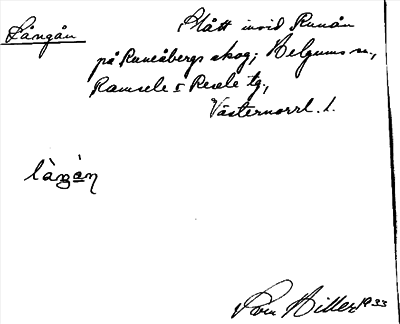 Långån
Slått invid Runån
på Runeåbergs skog; Helgums sn.,
Ramsele & Resele tg.,
Västernorrl. l.
làngàn
Hiller 1933